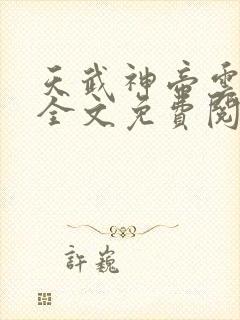 天武神帝雲
全文免費閱
許巍